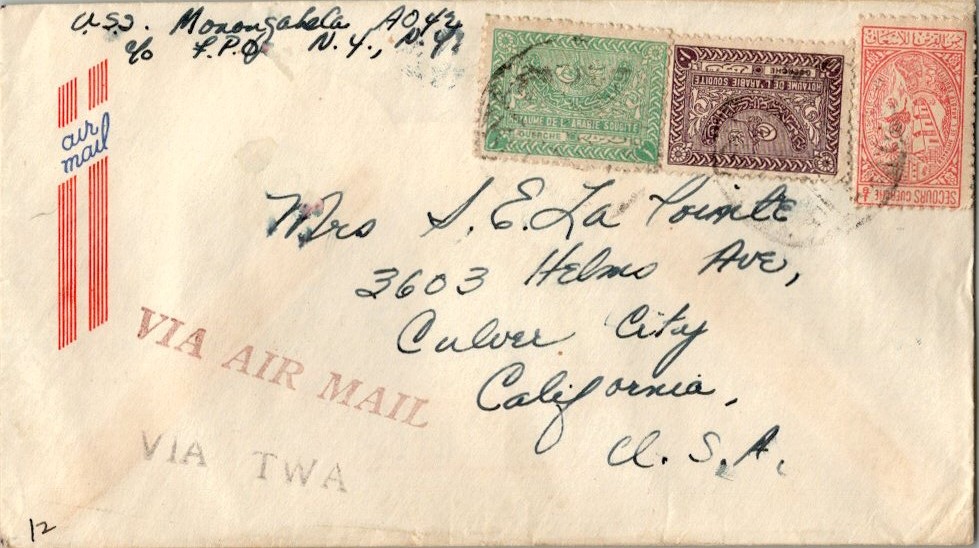 U.S.S. Monongahela AO42
c/o F.P.O N.Y., N.Y.
air
mail
ROYAUME DE L'ARABIE SOUDITE
GUERCHE
ROYAUME DE L'ARABIE SOUDITE
GUERCHE
SECOURS GUERCHE
Mrs S. E. La Pointe
3603 Helms Ave,
Culver City
California,
U.S.A.
VIA AIR MAIL
VIA TWA
12